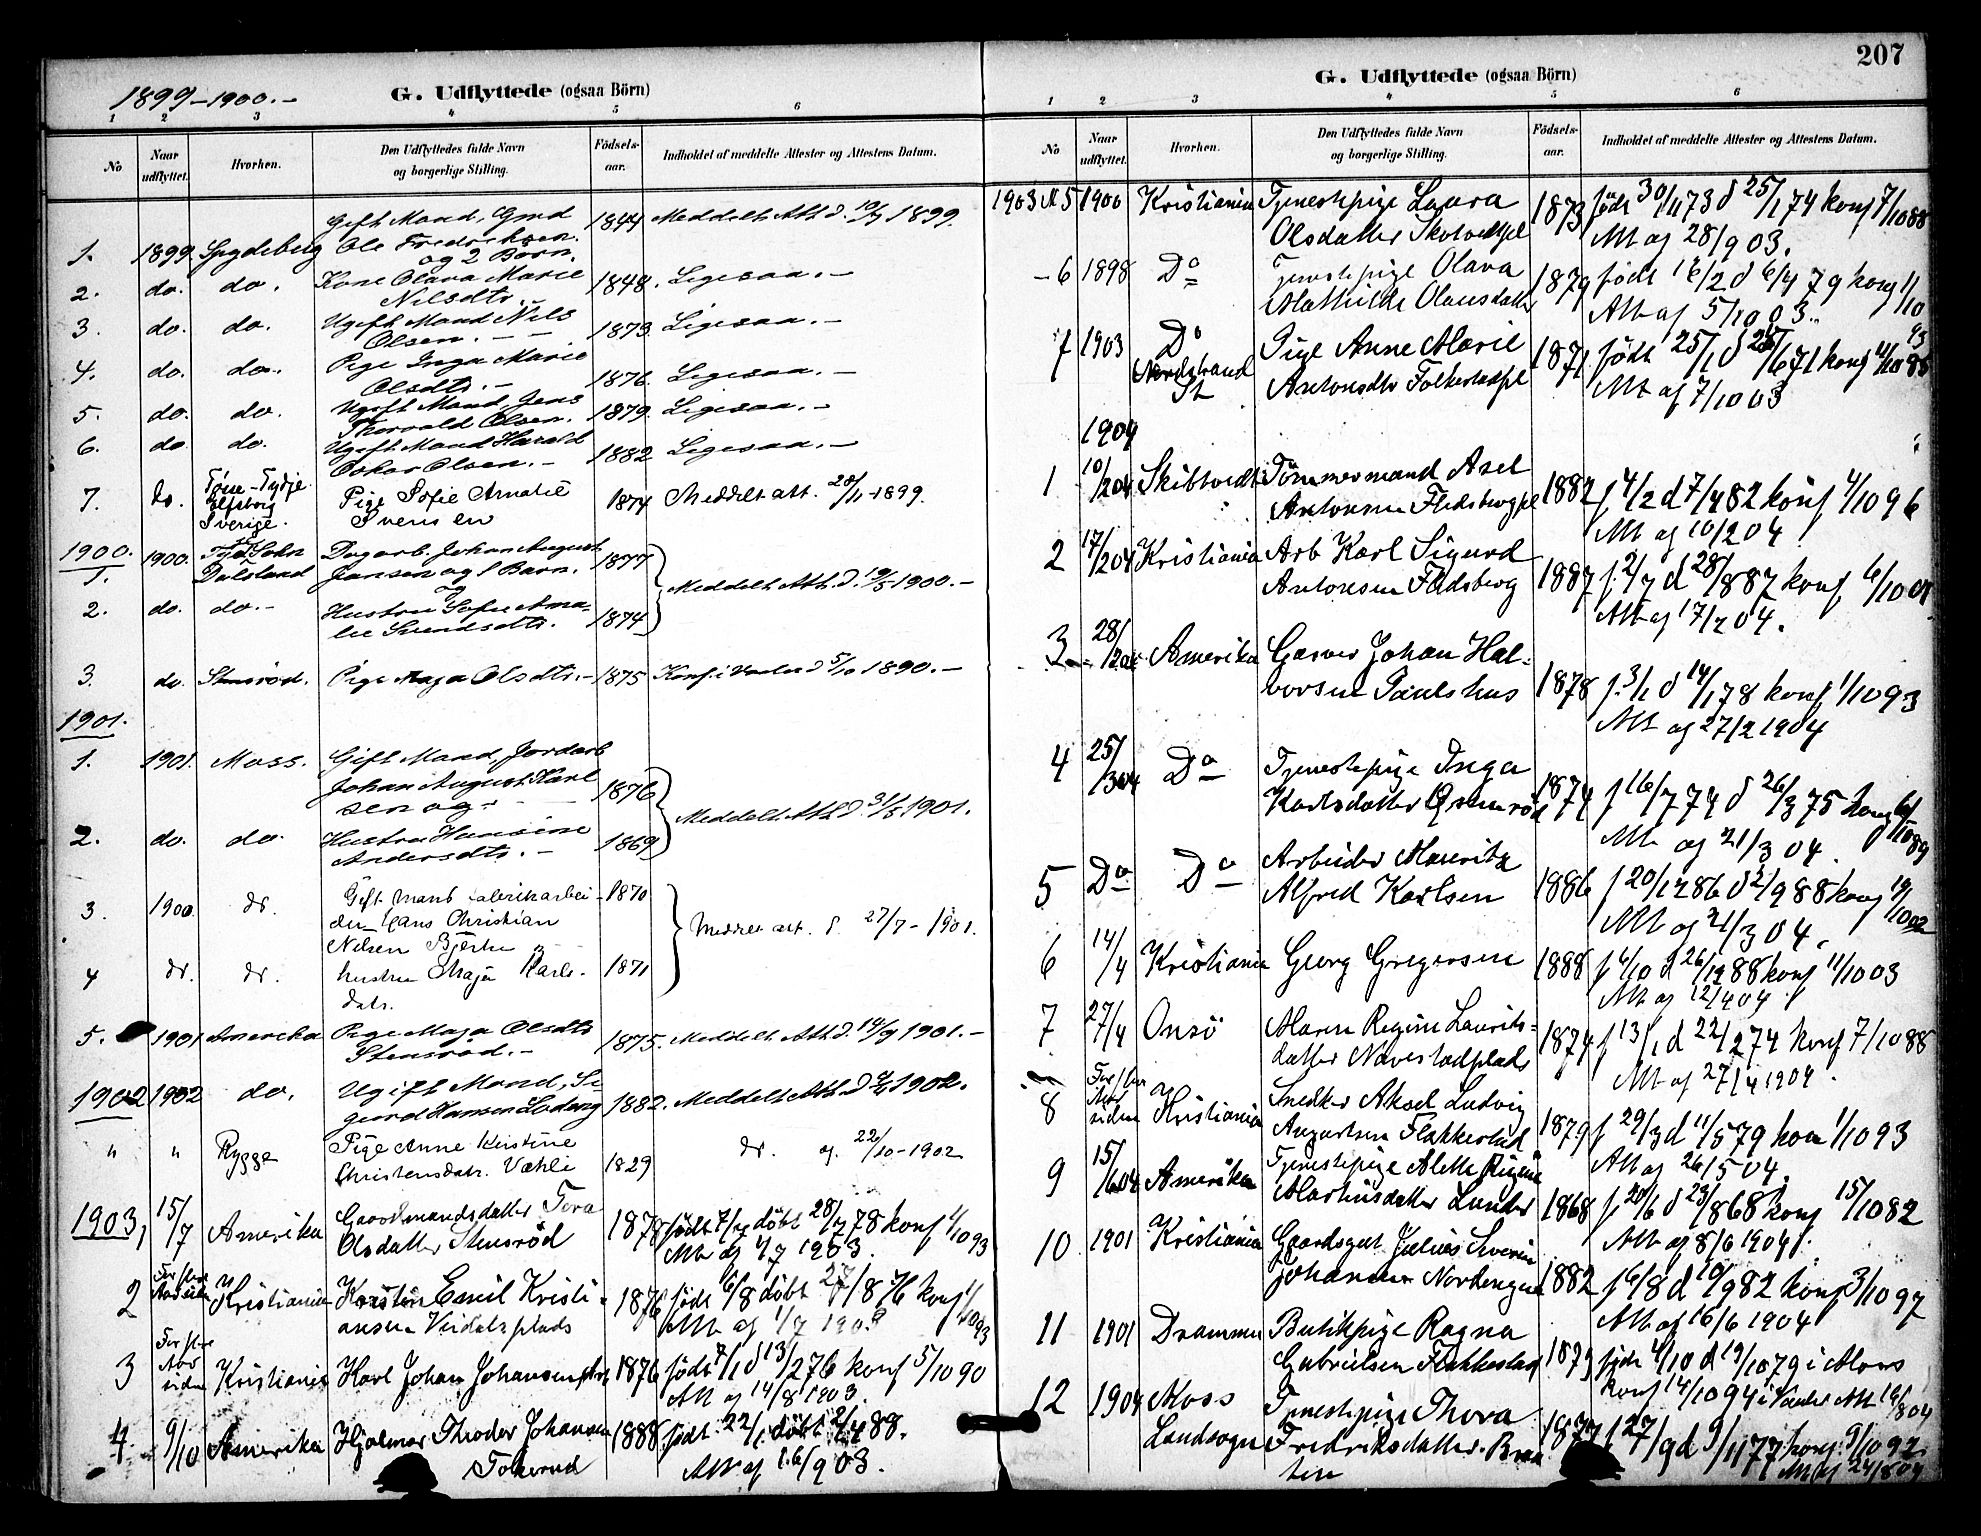 1899-1900.-
G. Udflyttede (ogsaa Börn)
1 2 3 4 5 6
No
Naar udflyttet.
Hvorhen.
Den Udflyttedes fulde Navn og borgerlige Stilling.
Födsels-aar.
Indholdet af meddelte Attester og Attestens Datum.
Gift Mand, Gmd
1. 1899 Spydeberg Ole Fredriksen 1844 Meddelt Att. d. 10/9 1899.
og 2 Börn.
2. do. do. Kone Olava Marie 1848. Ligesaa.-
Nilsdtr.
3. do. do. Ugift Mand Nils 1873. Ligesaa.-
Olsen.-
4. do. do. Pige Inga Marie 1876. Ligesaa.-
Olsdtr.-
5. do. do. Ugift Mand, Jens 1879. Ligesaa.-
Thorvald Olsen.
6. do. do. Ugift Mand Harald 1882 Ligesaa.-
Oskar Olsen.-
7. do. Elfsborg Sverige. Pige Sofie Amalie 1874 Meddelt att. 28/11-1899.
Svensen
1900.
1. 1900. Dalsland Dagarb. Johan August 1877
Jansen og 1 Barn.
Meddelt Att. d. 10/5 1900.-
2. do. do.- Hustru Sofie Ama-
lie Svendsdtr. 1874
3. do. Stensröd. Pige Maja Olsdtr.- 1875 Konf. i Vaaler d 5/10 1890.-
1901.
1. 1901. Moss. Gift Mand, Jordarb
Johan August Karl 1876
sen og-
Meddelt Att. d. 31/5 1901.
2. do. do. Hustru Hansine 1869
Andersdtr.-
3. 1900. do. Gift mand fabrikarbei- 1870
der Hans Christian
Nilsen Bjerke
Meddelt att. d. 27/7-1901.
4 do. do. hustru Maja Karls- 1871
datr.
5. 1901 Amerika Pige Maja Olsdtr 1875. Meddelt Att. d. 14/9 1901.-
Stensröd.-
1902 1902 do. Ugift Mand, Si
gurd Hansen Loderg 1882. Meddelt Att. d 1902.
" " Rygge Pige Anne Kristine
Christensdatr. Væhli 1829 do. af 22/10-1902
1903, 15/7 Amerika Gaardmandsdatter Tora 1878 født 7/7 döbt 28/7 78 konf 1/10 93
Olsdatter Stensröd Att af 1/7 1903.
2 Kristiania Kristen Emil Kristi- 1876 født 6/8 döbt 27/8 76 konf 1/10 93
ansen Veidalsplads Att af 1/7 1903
3 Kristiania Karl Johan Johansen 1876 født 7/1 d 13/2 76 konf 5/10 90
Att af 14/8 1903.
4 9/10 Amerika Hjalmar Theodor Johansen 1888 født 22/1 döbt 2/4 88.
Tokerud Att af 16/9 03.
207
G. Udflyttede (ogsaa Börn)
1 2 3 4 5 6
No
Naar udflyttet.
Hvorhen.
Den Udflyttedes fulde Navn og borgerlige Stilling.
Födsels-aar.
Indholdet af meddelte Attester og Attestens Datum.
1903 N 5 1900 Kristiania Tjenestepige Laura 1873 født 30/11 73 d 25/1 74 konf 7/10 88
Olsdatter Skotvedtpl Att af 28/9 03.
- 6 1898 Do Tjenestepige Olava 1879 født 16/2 d 6/4 79 konf 1/10 93
Mathilde Olausdatter Att af 5/10 03.
7 1903 Do Pige Anne Marie 1871 født 25/1 d 25/6 71 konf 4/10 85
Nordstrand St Antonsdtr Folkestadpl Att af 7/10 03
1904
1 10/2 04 Skibtvedt Tömmermand Axel 1882 f 4/2 d 7/4 82 konf 4/10 96
Antonsen Fladsbergpl Att af 10/2 04
2 17/2 04 Kristiania Arb Karl Sigurd 1887 f. 2/7 d 28/8 87 konf 6/10 01
Antonsen Fladsberg Att af 17/2 04.
3 28/2 04 Amerika Garver Johan Hal-
vorsen Paulshus 1878 f. 3/1 d 14/1 78 konf 1/10 93
Att af 27/2 1904
4 25/3 04 Do Tjenestepige Inga
Karlsdatter 1874 f 16/7 74 d 26/3 75 konf 6/10 89
Att af 21/3 04.
5 Do Do Arbeider Mauritz
Alfred Karlsen 1886 f 20/12 86 d 2/9 88 konf 19/10 02
Att af 21/3 04.
6 14/4 Kristiania Georg Gregersen 1888 f 4/10 d 26/12 88 konf 11/10 03
Att af 12/4 04.
7 27/4 Onsö Maren Regine Laurits-
datter Navestadplads 1874 f 13/1 d 22/2 74 konf 7/10 88
Att af 27/4 1904.
8 Kristiania Snedker Aksel Ludvig
Augustsen Flakkestad 1879 f 29/3 d 11/5 79 kon 1/10 93
Att af 26/5 04.
9 15/6 04 Amerika Tjenestepige Alette Regine
Marthinsdatter Lunder 1868 f. 20/6 d 23/8 68 konf 15/10 82
Att af 8/6 1904.
10 1901 Kristiania Gaardsgut Julius Severin
Johansen Nordengen 1882 f 6/8 d 10/9 82 konf 3/10 97
Att af 16/6 1904
11 1901 Drammen Butikpige Ragna
Gabrielsen Flakkestad 1879 född 4/10 d 19/10 79 i Moss
konf 14/10 94 i Vaaler Att 16/8 04
12 1904 Moss Tjenestepige Thora
Landsogn Fredriksdatter Braa 1877 f 27/9 d 9/11 77 konf. 9/10 92
ten Att af 24/8 04